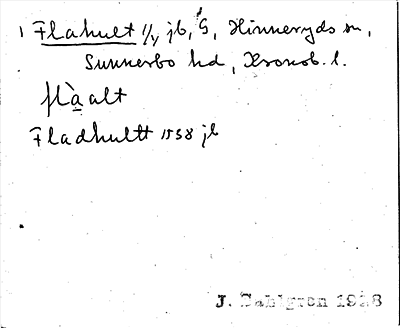 1 Flahult 1/4 jb, G, Hinneryds sn,
Sunnerbo hd, Kronob. l.
flàalt
Fladhultt 1538 jb
J. Dahlgren 1928